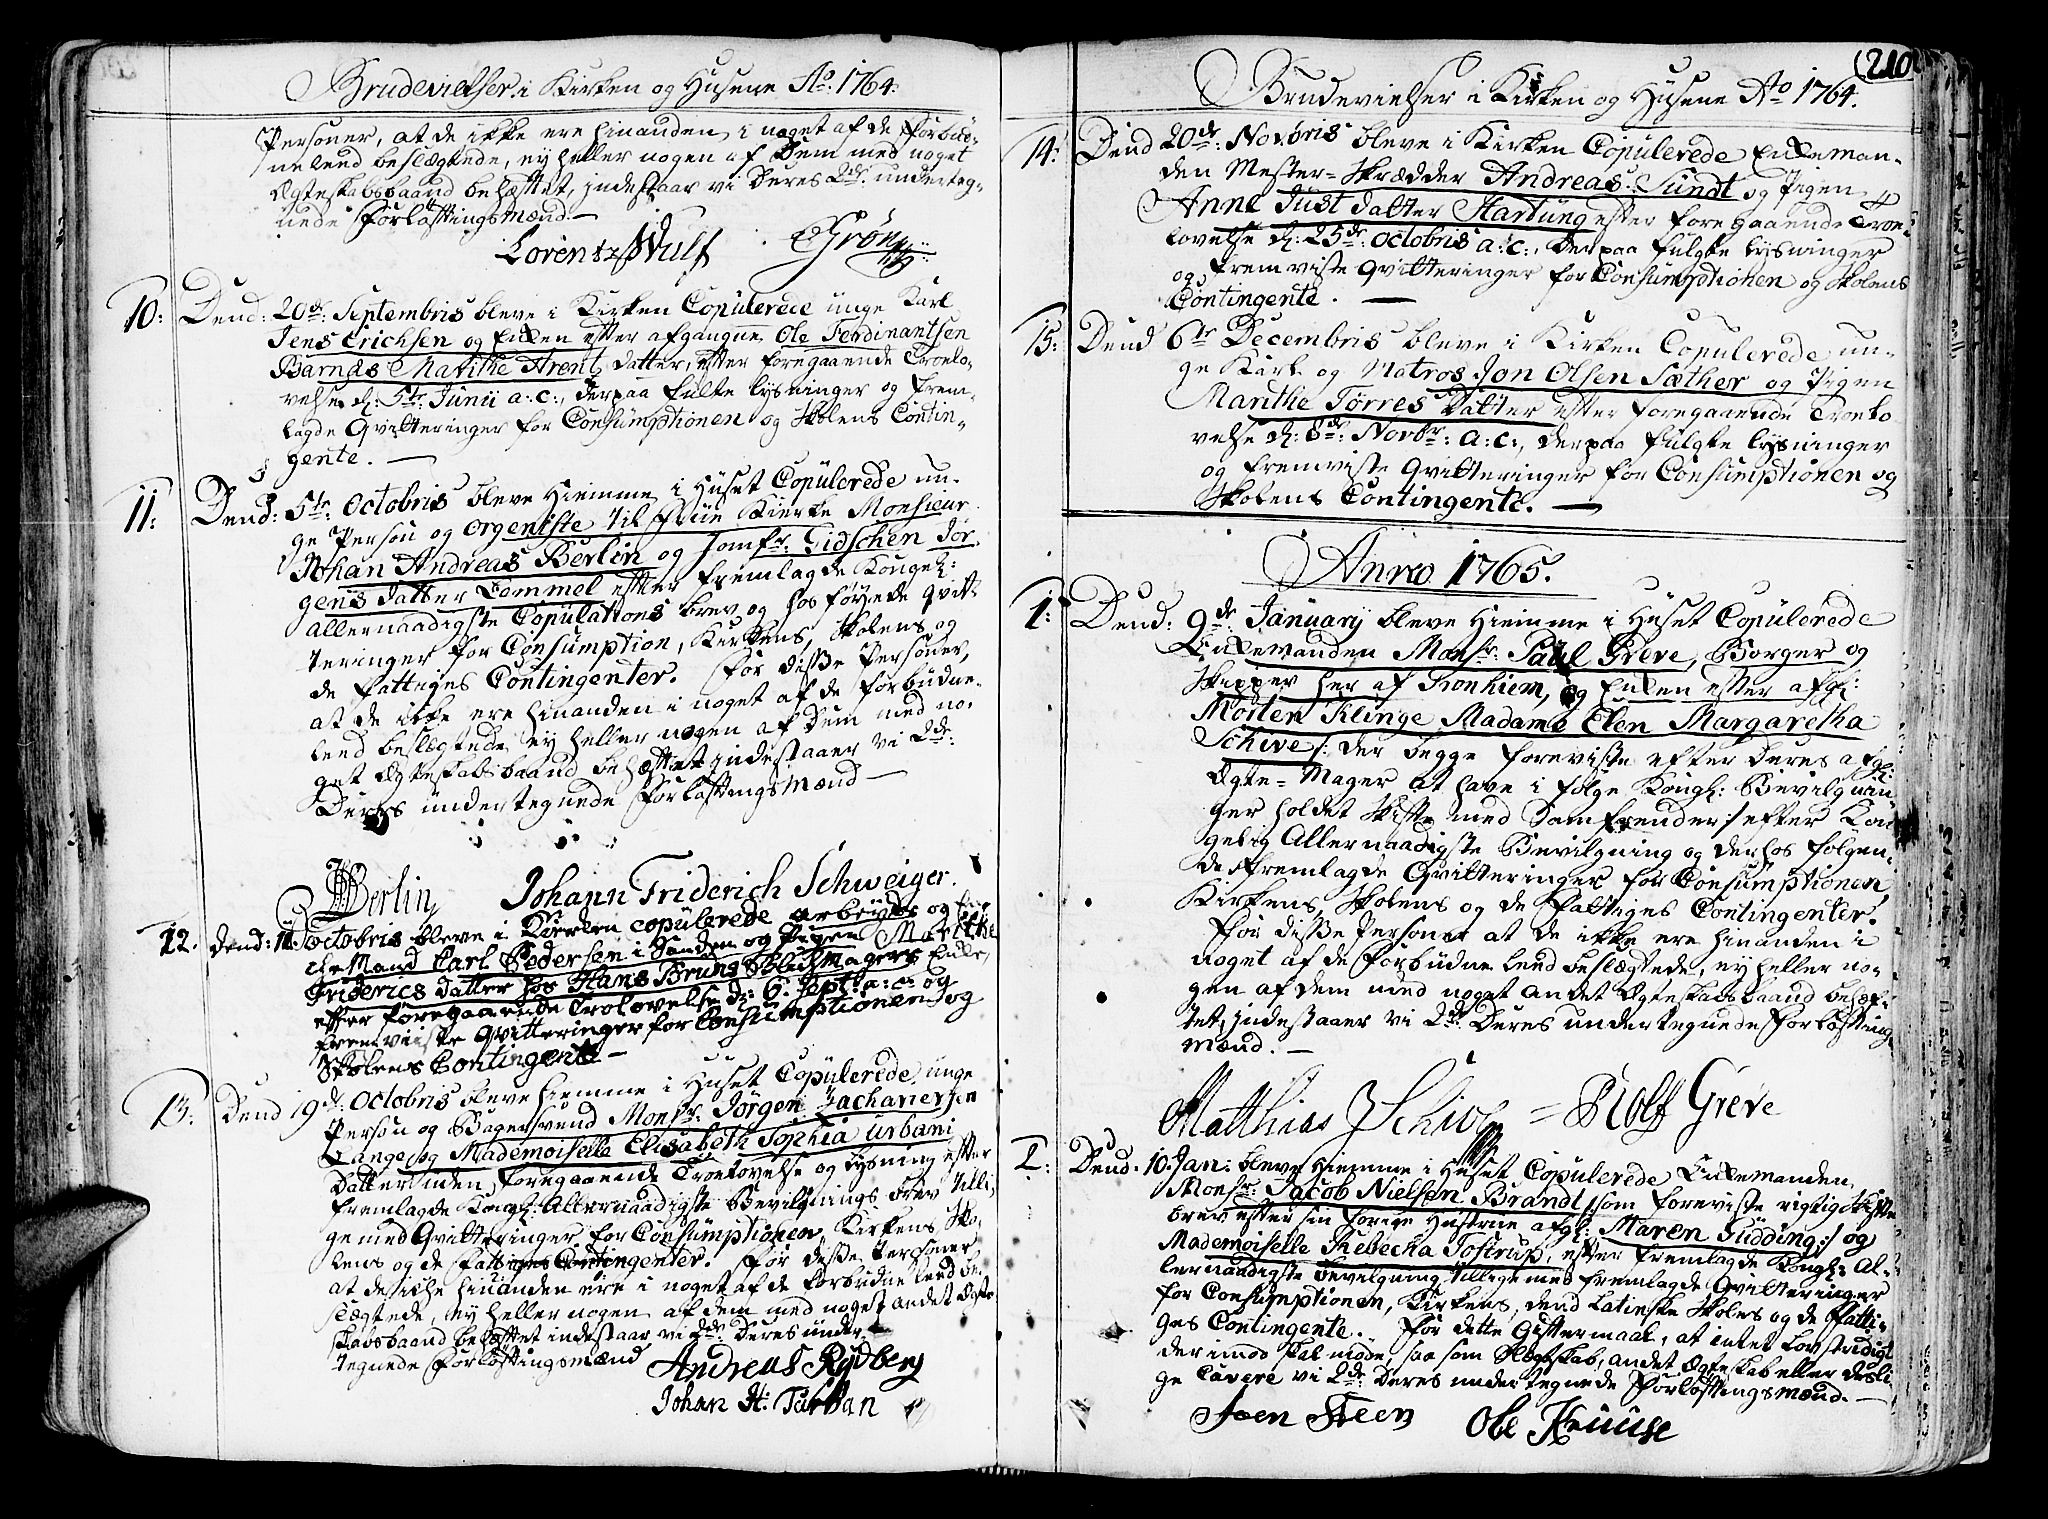 Brudevielser i Kirken og Husene Ao: 1764.
Personer, at de ikke ere hinanden i noget af de forbüd-
ne leed beslægtede, ey heller nogen af Dem med noget
Ægteskabsbaand behæftet, indestaar vi Deres 2de underteg-
nede Forlåftingsmænd.
Lorentz Wulf
10: Dend: 20de: Septembris bleve i Kirken Copülerede unge Karl
Jens Erichsen og Enken efter afgangne Ole Ferdinantsen
Barnas Marithe Arent Datter, efter foregaaende Troelo-
velse d: 5te Junii a: c:, derpaa fulte lysninger og frem-
lagde Qvitteringer for Consümptionen og Skolens Contin-
gente.
11: Dend: 5te: Octobris bleve Hiemme i Hüset Copülerede un-
ge Person og Orgeniste til Frue Kierke Monsieur
Johan Andreas Berlin og Jomfr: Gidschen Jør-
gens Datter Lemmel efter fremlagde Kongel:
allernaadigste Copülations brev og hosføyede Qvit-
teringer for Consümption, Kirkens, Skolens og
de fattiges Contingenter. For disse Personer,
at de ikke ere hinanden i noget af de forbüdne
leed beslægtede ey heller nogen af Dem med no-
get Ægteskabsbaand behæftet indestaaer vi 2de:
Deres ündertegnede Forlåftingsmænd
Berlin Johann Friderich Schweiger.
12. Dend: 11. Octobris bleve i Kierken copülerede arbeyds og
Mand Carl Pedersen i Sanden og Pigen Marithe
Friderics datter hos Hans Bruns Blechmagers Enke,
efter foregaaende Trolovelse d: 6. Sept: a: c: og
fremviiste Qvitteringer for Consümptionen og
Skolens Contingente
13: Dend 19de: Octobris bleve hiemme i Hüset Copülerede unge
Person og Bagersvend Monsr: Jørgen Zachariersen
Lange og Mademoiselle Elisabeth Sophia Urbani
Datter uden foregaaende Troelovelse og lysning efter
fremlagde Kongl: Allernaadigste Bevilgnings brev tilli-
ge med Qvitteringer for Consümptionen, Kirkens, Sko-
lens og de fattiges Contingenter. For disse Personer
at de icke hinanden ere i noget af de forbudne leed be-
slægtede, ey heller nogen af dem med noget andet Ægte-
skabsbaand behæftet indestaar vi 2de: Deres ünder-
tegnede Forlåftingsmænd
Andreas Rydberg
Johan H:
(210
Brudevielser i Kirken og Hüsene Ao 1764.
14: Dend 20de: Novbris bleve i Kirken Copulerede Enkeman-
den Mester-Skrædder Andreas Sundt og Pigen
Anne Just datter Hartung efter foregaaende Troe-
lovelse d: 25de: Octobris a: c:, derpaa fulgte lysninger
og fremviste Qvitteringer for Consumptionen og Skolens
Contingente.
15: Dend 6te Decembris bleve i Kirken Copulerede un-
ge Karl og Matros Jon Olsen Sæther og Pigen
Marithe Tørres Datter efter foregaaende Troelo
velse d: 8de: Novbr: a: c:, derpaa fulgte lysninger
og fremviste Qvitteringer for Consumptionen og
Skolens Contingente.
Anno 1765.
1: Dend: 9de January bleve Hiemme i Hüset Copülerede
Enkemanden Monsr: Paul Greve, Borger og
Skipper her af Tronhiem, og Enken efter afg:
Morten Klinge Madame Elen Margaretha
Schive /: der begge foreviste efter deres afgl:
Ægte-Mager at have i følge Kongl: Bevilgnin
ger holdet Skifte med Samfrender :/ efter Kon
gelig Allernaadigste Bevilgning og derhos følgen-
de fremlagde Qvitteringer for Consümptionen
Kirkens, Skolens og de Fattiges Contingenter.
For disse Personer at de ikke ere hinanden i
noget af de Forbüdne leed beslægtede, ey heller no-
gen af dem med noget andet Ægteskabsbaand behæf-
tet, indestaaer vi 2de: Deres undertegnede Forlåftings
mænd.
Matthias Schive = Rolf Greve
2: Dend: 10. Jan: bleve Hiemme i Hüset Copülerede Enkemanden
Monsr: Jacob Nielsen Brandt /: som foreviste rigtig Skifte
brev efter sin forige Hustrue afgl: Maren Günding :/ og
Mademoiselle Rebecka Tostrup, efter fremlagde Kongl: Al-
lernaadigste bevilgning tillige med fremlagde Qvitteringer
for Consumptionen, Kirkens, dend Latinske Skoles og de Fatti-
ges Contingente. For dette Giftermaal, at intet lovstridigt
derimod skal møde, saa som Slegtskab, andet Ægteskab eller desli
ge Cavere vi 2de: Deres undertegnede Forlåftingsmænd.
Joen Steen Ole Kruuse